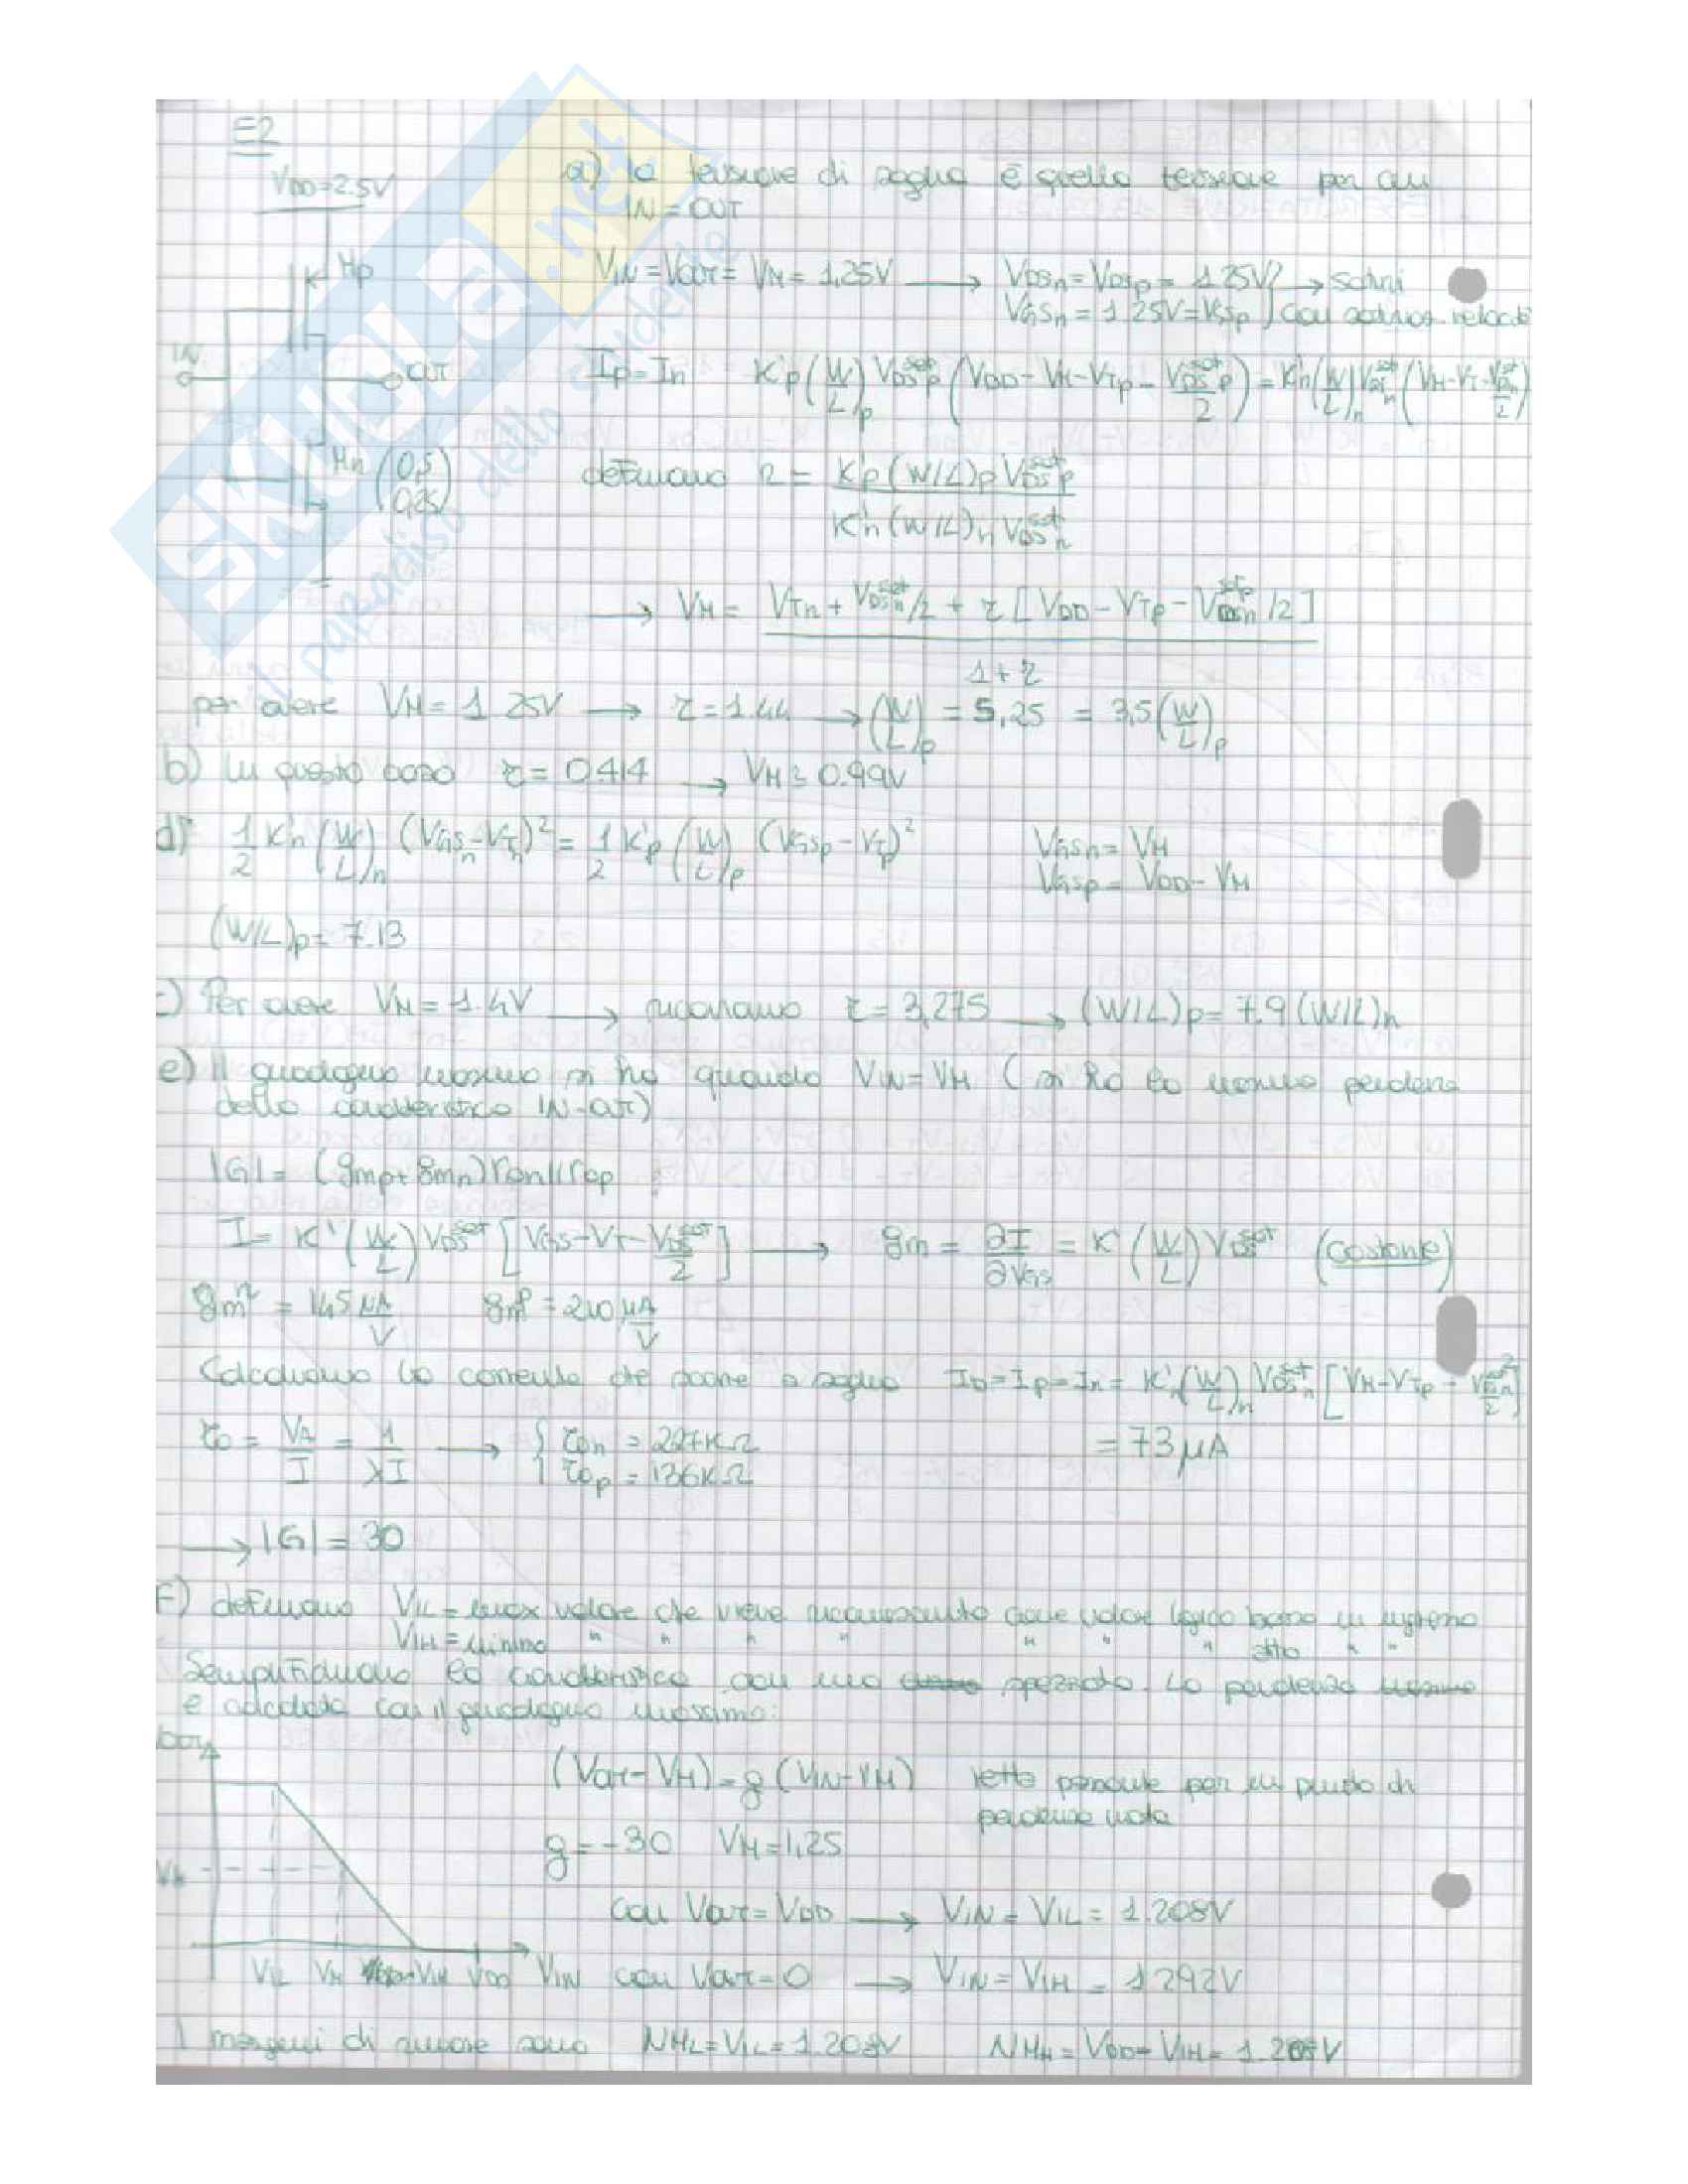 E2
VDD=2.5V
a) la tensione di soglia è quella tensione per cui
IN = OUT
Mp
VIN = VOUT = VM = 1,25V → VDSn = VDSp = 1.25V } → saturi
VGSn = 1.25V = VGSp } con saturaz. velocità
IN
OUT
Ip = In K'p (W/L)p VDSp^sat (VDD - VM - VTp - VDSp^sat/2) = K'n (W/L)n VDSn^sat (VM - VT - VDSn^sat/2)
Mn (0,5/0,25)
definiamo r = K'p (W/L)p VDSp^sat / K'n (W/L)n VDSn^sat
→ VM = VTn + VDSn^sat/2 + r [VDD - VTp - VDSn^satp/2] / 1 + r
per avere VM = 1.25V → r = 1.44 → (W/L)p = 5,25 = 3,5 (W/L)p
b) In questo caso r = 0.414 → VM ≃ 0.99V
d) 1/2 K'n (W/L)n (VGSn - VTn)² = 1/2 K'p (W/L)p (VGSp - VTp)² VGSn = VM
VGSp = VDD - VM
(W/L)p = 7.13
c) Per avere VM = 1.4V → ricaviamo r = 3,275 → (W/L)p = 7.9 (W/L)n
e) Il guadagno massimo si ha quando VIN = VM (si ha la massima pendenza
della caratteristica IN-OUT)
|G| = (gmp + gmn) ron//rop
I = K' (W/L) VDS^sat [VGS - VT - VDS^sat/2] → gm = ∂I/∂VGS = K (W/L) VDS^sat (costante)
gm^n = 145 μA/V gm^p = 210 μA/V
Calcoliamo la corrente che scorre a soglia ID = Ip = In = K'n (W/L)n VDSn^sat [VM - VTp - VDSn^sat/2]
r0 = VA/I = 1/λI → { r0n = 227KΩ
r0p = 136KΩ
= 73 μA
→ |G| = 30
F) definiamo VIL = max valore che viene riconosciuto come valore logico basso in ingresso
VIH = minimo " " " " " " " alto " "
Semplifichiamo la caratteristica con una spezzata. La pendenza
è calcolata con il guadagno massimo:
VOUT
(VOUT - VM) = g (VIN - VM) retta passante per un punto di
pendenza nota
g = -30 VM = 1,25
VM
con VOUT = VDD → VIN = VIL = 1.208V
VIL VM VIH VDD VIN con VOUT = 0 → VIN = VIH = 1.292V
I margini di rumore sono NML = VIL = 1.208V NMH = VDD - VIH = 1.208V
SKUOLA.net
il paradiso dello studente